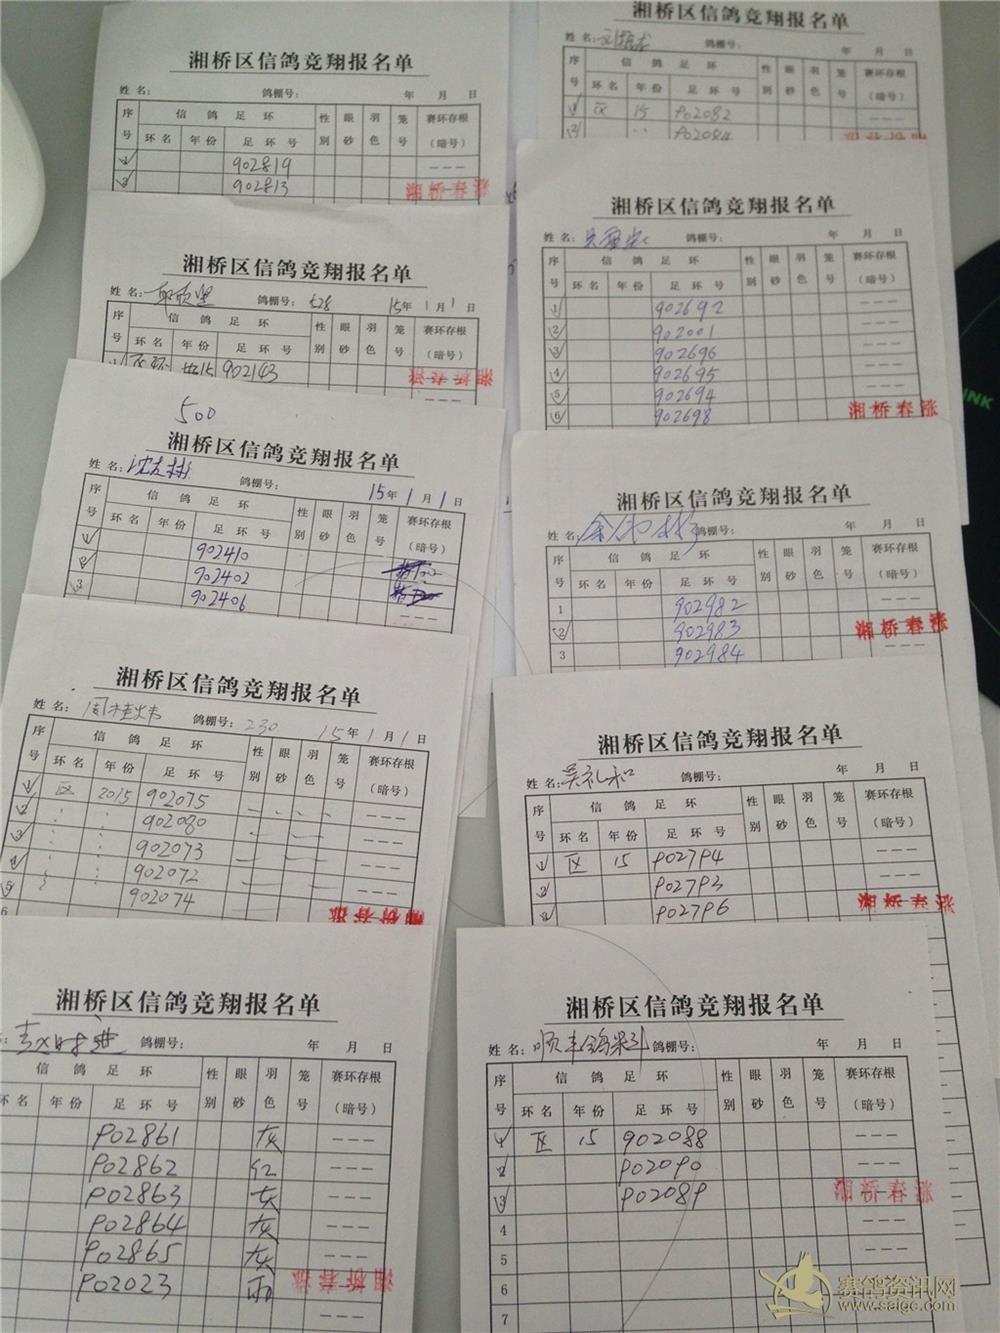 湘桥区信鸽竞翔报名单
姓名: 鸽棚号: 年 月 日
序号 信鸽足环 性别 眼砂 羽色 笼号 赛环存根(暗号)
环名 年份 足环号
1 902819 ---
2 902813
湘桥春涨
湘桥区信鸽竞翔报名单
姓名: 鸽棚号: 528 15年1月1日
序号 信鸽足环 性别 眼砂 羽色 笼号 赛环存根(暗号)
环名 年份 足环号
1 区环 15 902143
湘桥春涨
500
湘桥区信鸽竞翔报名单
姓名: 沈友彬 鸽棚号: 15年1月1日
序号 信鸽足环 性别 眼砂 羽色 笼号 赛环存根(暗号)
环名 年份 足环号
1 902410
2 902402
3 902406
---
湘桥区信鸽竞翔报名单
姓名: 周桂炜 鸽棚号: 230 15年1月1日
序号 信鸽足环 性别 眼砂 羽色 笼号 赛环存根(暗号)
环名 年份 足环号
1 区 2015 902075 ---
2 902080 ---
3 902073 ---
4 902072 ---
5 902074
6
湘桥春涨
湘桥区信鸽竞翔报名单
: 鸽棚号: 年 月 日
信鸽足环 性别 眼砂 羽色 笼号 赛环存根(暗号)
环名 年份 足环号
902861 灰 ---
902862 红 ---
902863 灰 ---
902864 灰 ---
902865 灰 ---
902023 雨
湘桥春涨
湘桥区信鸽竞翔报名单
姓名: 鸽棚号: 年 月 日
序号 信鸽足环 性别 眼砂 羽色 笼号 赛环存根(暗号)
环名 年份 足环号
1 区 15 902082 ---
2 902084
湘桥春涨
湘桥区信鸽竞翔报名单
姓名: 鸽棚号: 年 月 日
序号 信鸽足环 性别 眼砂 羽色 笼号 赛环存根(暗号)
环名 年份 足环号
1 902692 ---
2 902001 ---
3 902696 ---
4 902695 ---
5 902694 ---
6 902698
湘桥春涨
INK
湘桥区信鸽竞翔报名单
姓名: 鸽棚号: 年 月 日
序号 信鸽足环 性别 眼砂 羽色 笼号 赛环存根(暗号)
环名 年份 足环号
1 902982 ---
2 902983
3 902984 ---
湘桥春涨
湘桥区信鸽竞翔报名单
姓名: 吴礼和 鸽棚号: 年 月 日
序号 信鸽足环 性别 眼砂 羽色 笼号 赛环存根(暗号)
环名 年份 足环号
1 区 15 902794 ---
2 902793 ---
3 902796
湘桥春涨
湘桥区信鸽竞翔报名单
姓名: 顺丰鸽 鸽棚号: 年 月 日
序号 信鸽足环 性别 眼砂 羽色 笼号 赛环存根(暗号)
环名 年份 足环号
1 区 15 902088 ---
2 902090 ---
3 902089
4 ---
5 ---
6 ---
7 ---
湘桥春涨
赛鸽资讯网
www.saigc.com